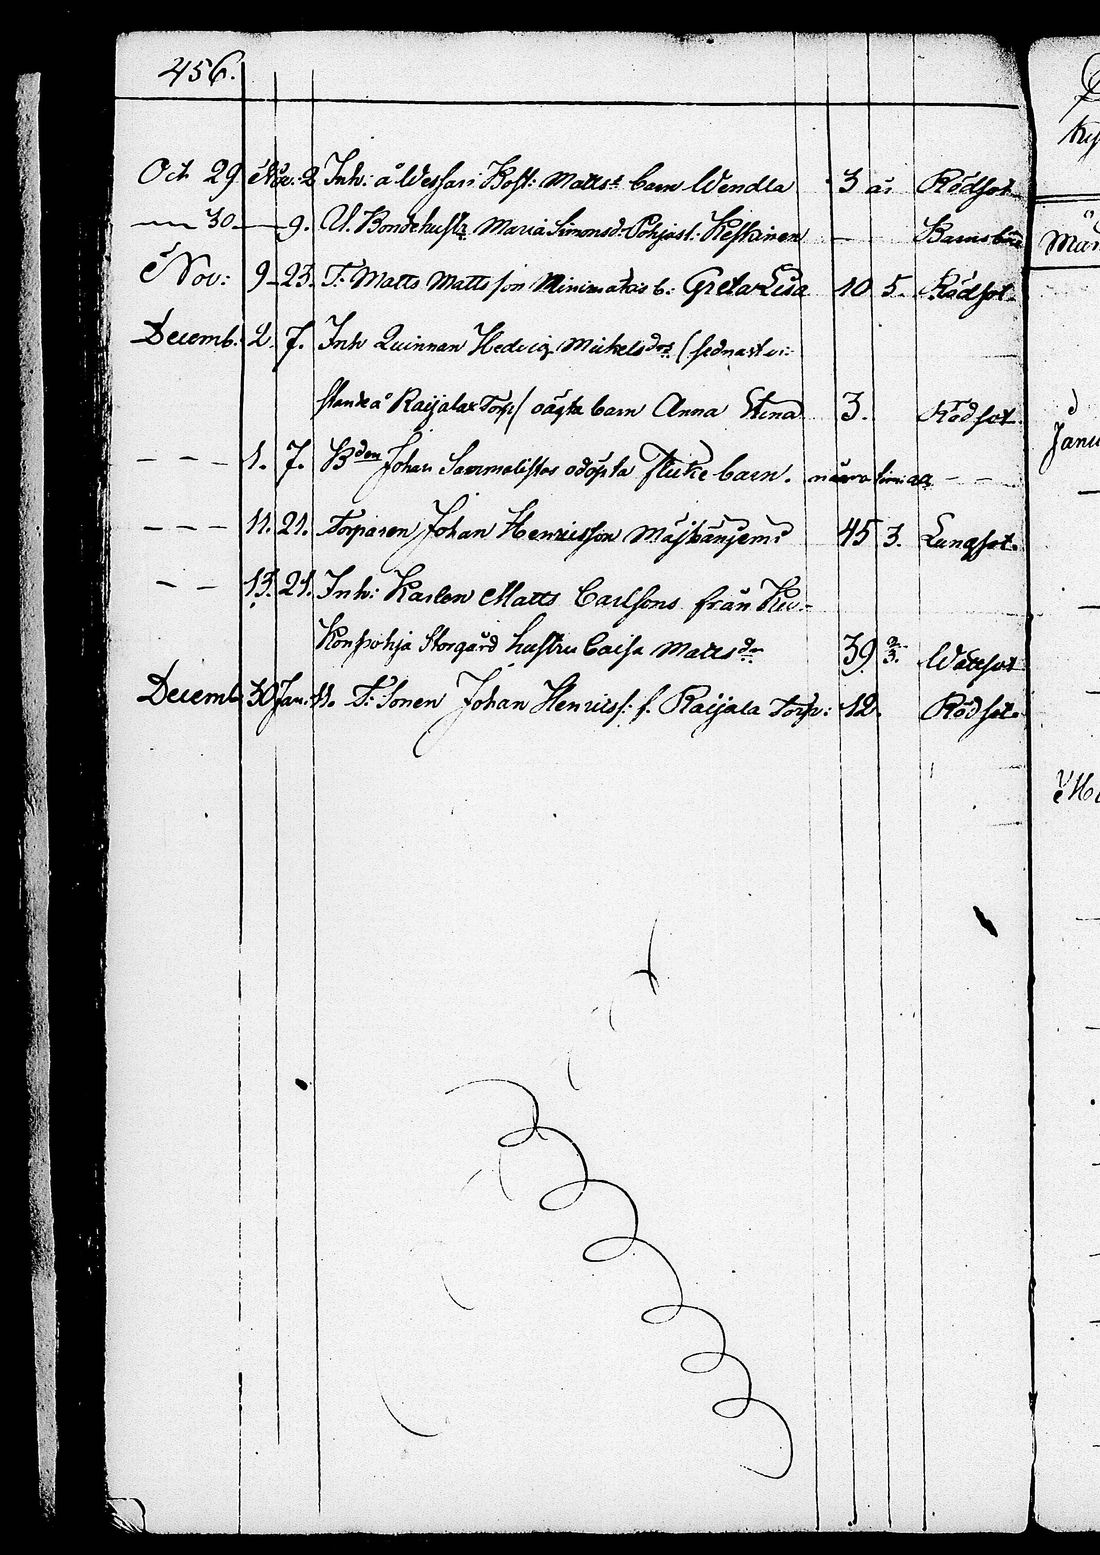 456.
Oct 29 Nov: 2 Inh: å Wessari Kost: Matts: barn Wendla 3 år Rödsot
— 30 — 9. U. Bondehustr Maria Simonsd: Pohjast: Keskinen — Barnsbörd
Nov: 9 23. T: Matts Mattsson Minimäkis b: Greta Lisa 10 5. Rödsot
Decemb. 2. 7. Inh Quinnan Hedvig Mickelsdr (sednast
Raijala Torp/ oägta barn Anna Stina 3. Rödsot
— — — 1. 7. Bden Johan odöpta flicke barn. nära — —
— — — 11. 21. Torparen Johan Henricsson 45 3. Lungsot.
— — 13. 21. Inh: Karlen Matts Carlsons från Keu-
konpohja Storgård hustru Caisa Mattsdr 39 3. Wattsot
Decemb 30 Jan: 11. T: Sonen Johan Henricss: f. Raijala Torp: 12. Rödsot.
Janu